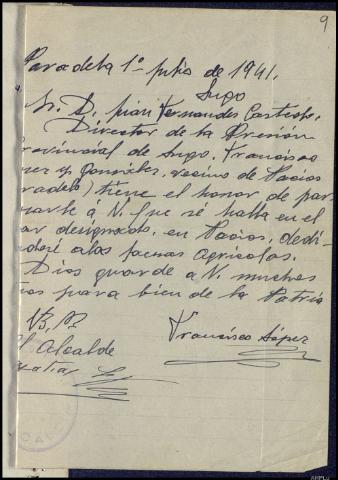 9
Paradela 1º Julio de 1941.
Lugo
Sr. D. Juan Fernandez Castedo.
Director de la Presión
Provincial de Lugo. Francisco
pez y González, vecino de Pacios
radela) tiene el honor de par
parle á V. que se halla en el
ar designado, en Pacios, dedi-
cadose alas faenas agricolas.
Dios guarde a V. muchos
ños para bien de la Patria
Vº. Bº.
El Alcalde
Francisco López